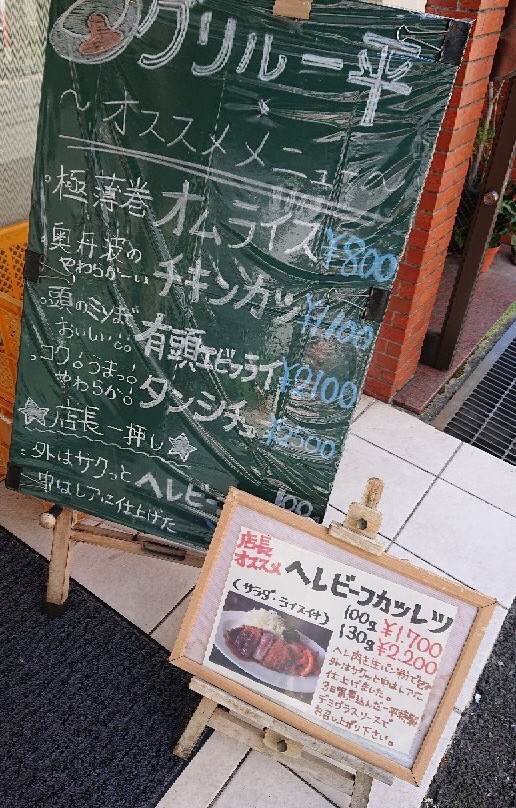 グリル一平
～オススメメニュー～
・極薄巻 オムライス ¥800
奥丹波の
やわらかーい チキンカツ ¥1100
・頭のミソまで
おいしい。 有頭エビフライ ¥2100
・コク！うまっ！
やわらか。 タンシチュー ¥2500
☆店長一押し☆
外はサクっと
中はレアに仕上げた ヘレビー 100
店長
オススメ ヘレビーフカツレツ
(サラダ・ライス付) 100g ¥1,700
130g ¥2,200
ヘレ肉を生パン粉で包み
外はサクッと中はレアに
仕上げました。
3日間煮込んだ一平特製
デミグラスソースで
お召し上がり下さい。